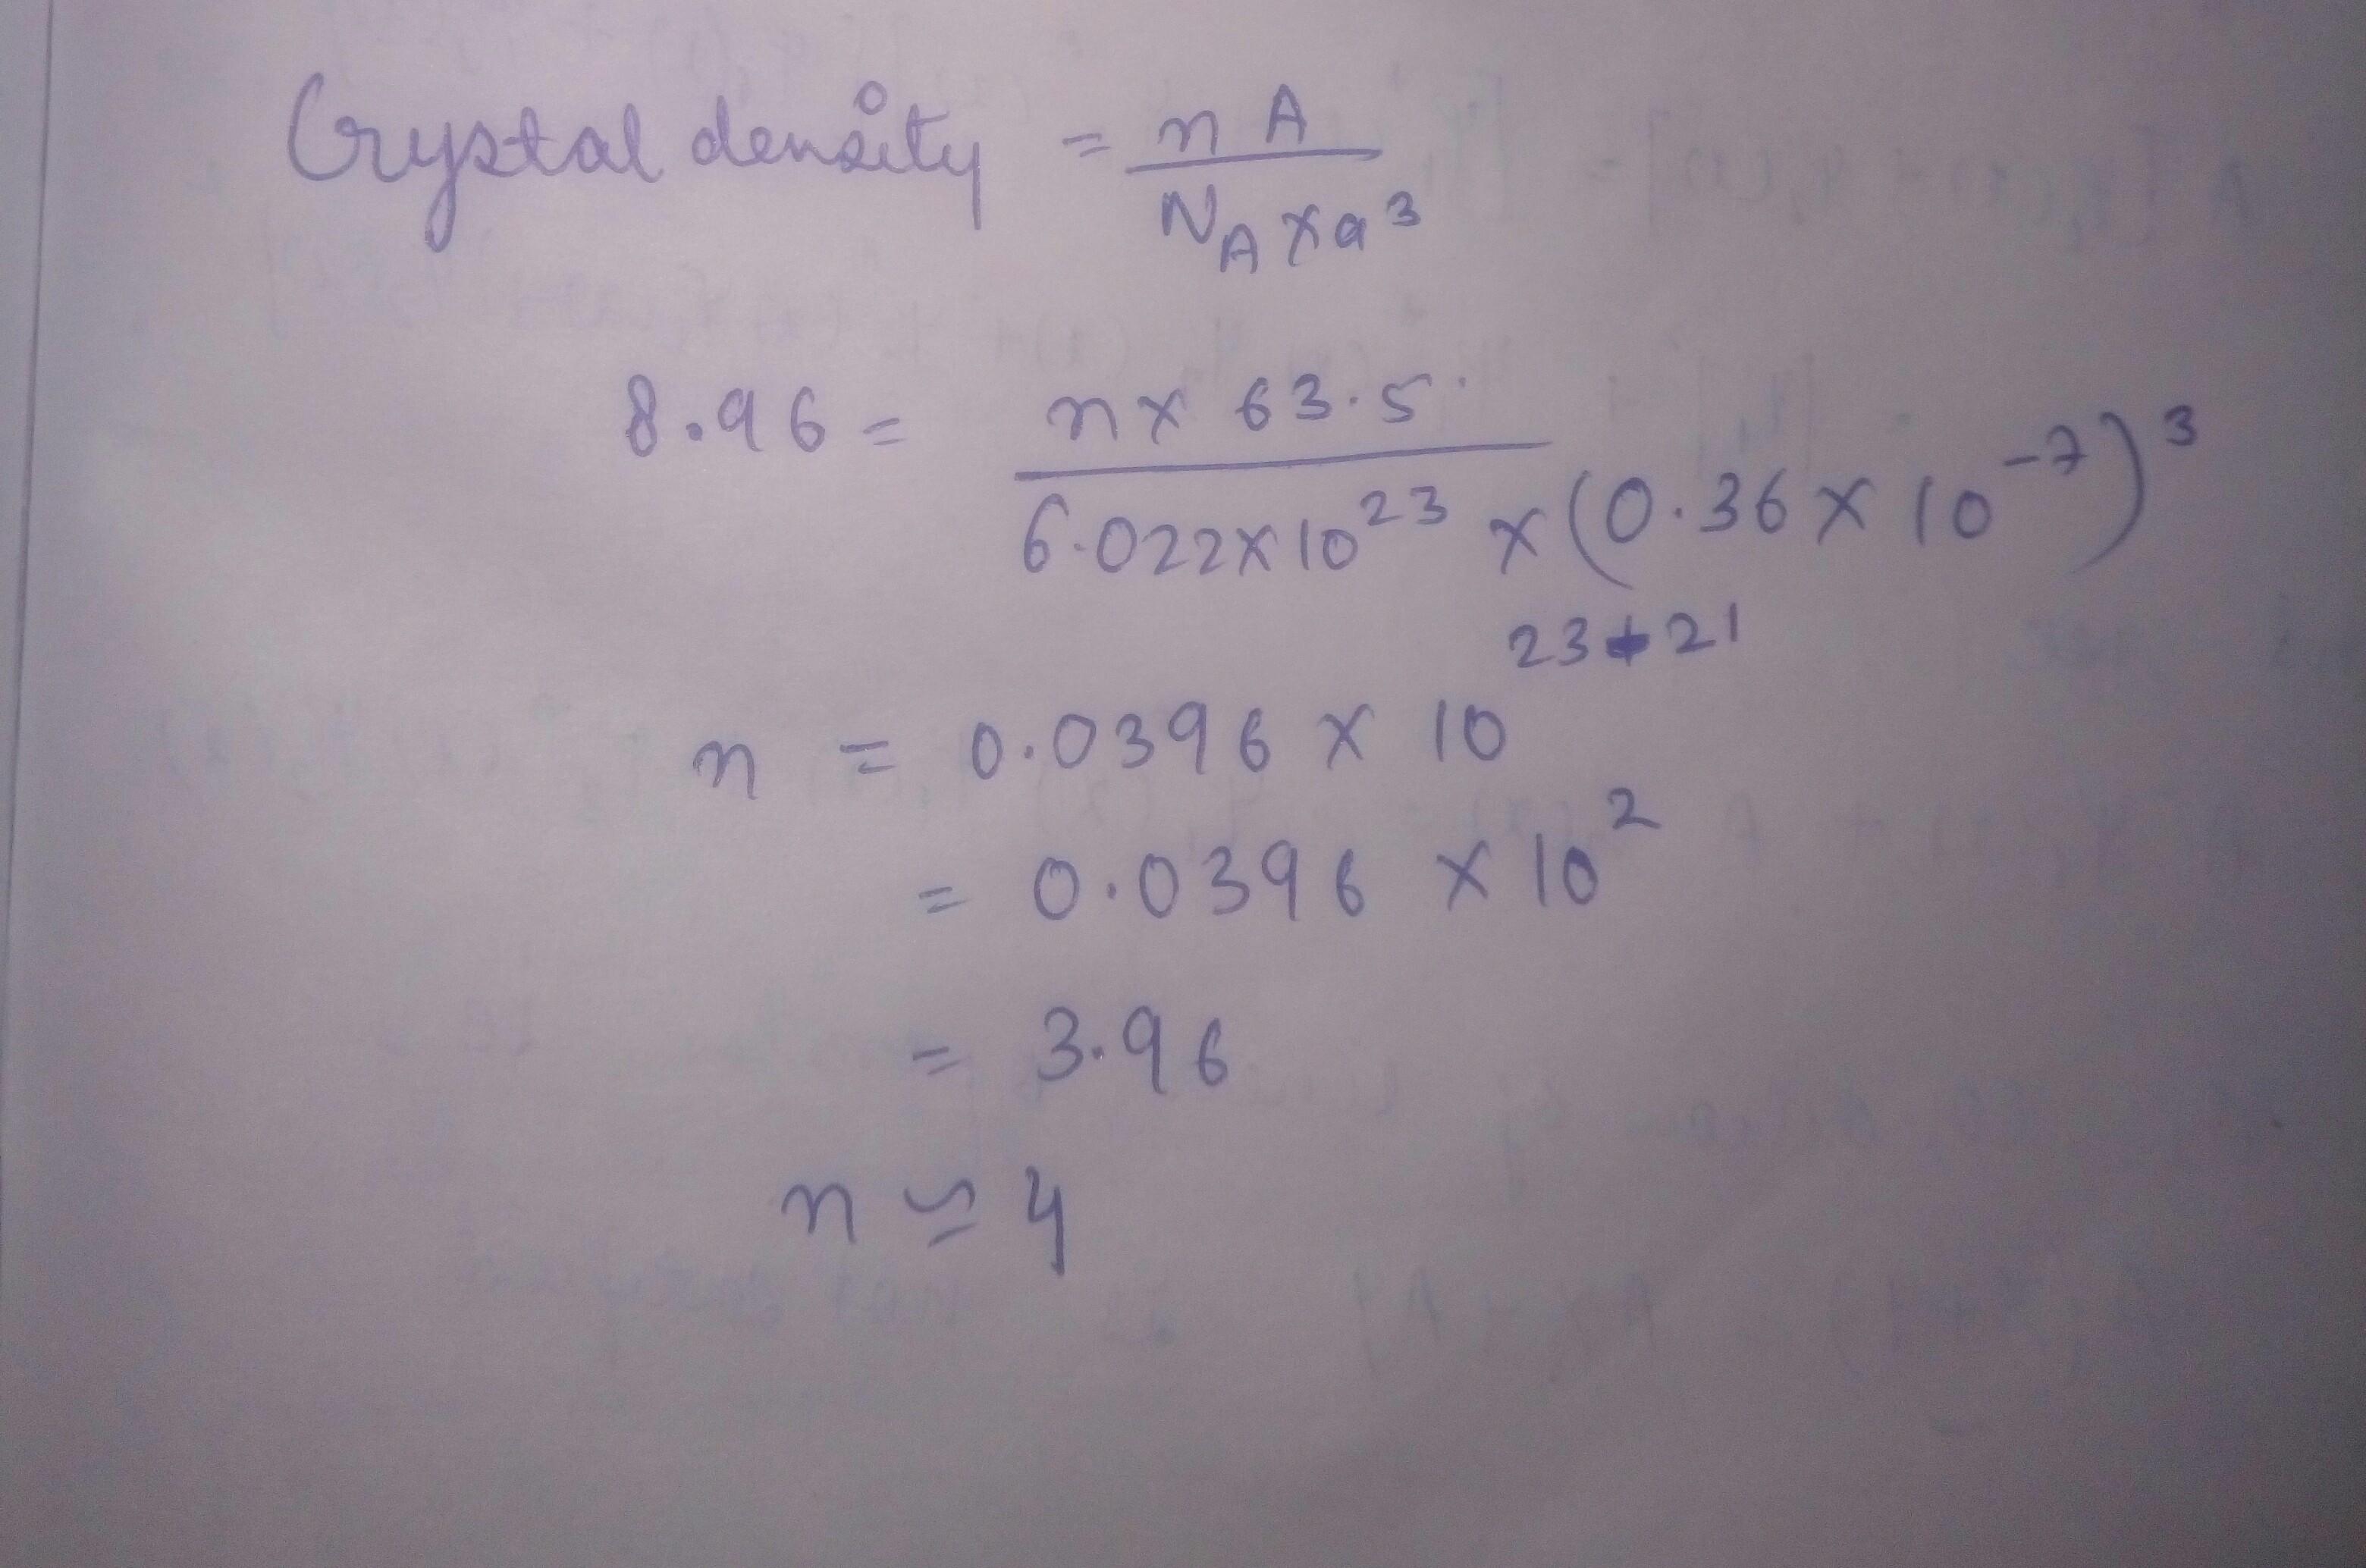 Crystal density = n A / N_A × a³
8.96 = n × 63.5 / 6.022 × 10²³ × (0.36 × 10⁻⁷)³
n = 0.0396 × 10²³⁺²¹
= 0.0396 × 10²
= 3.96
n ≃ 4